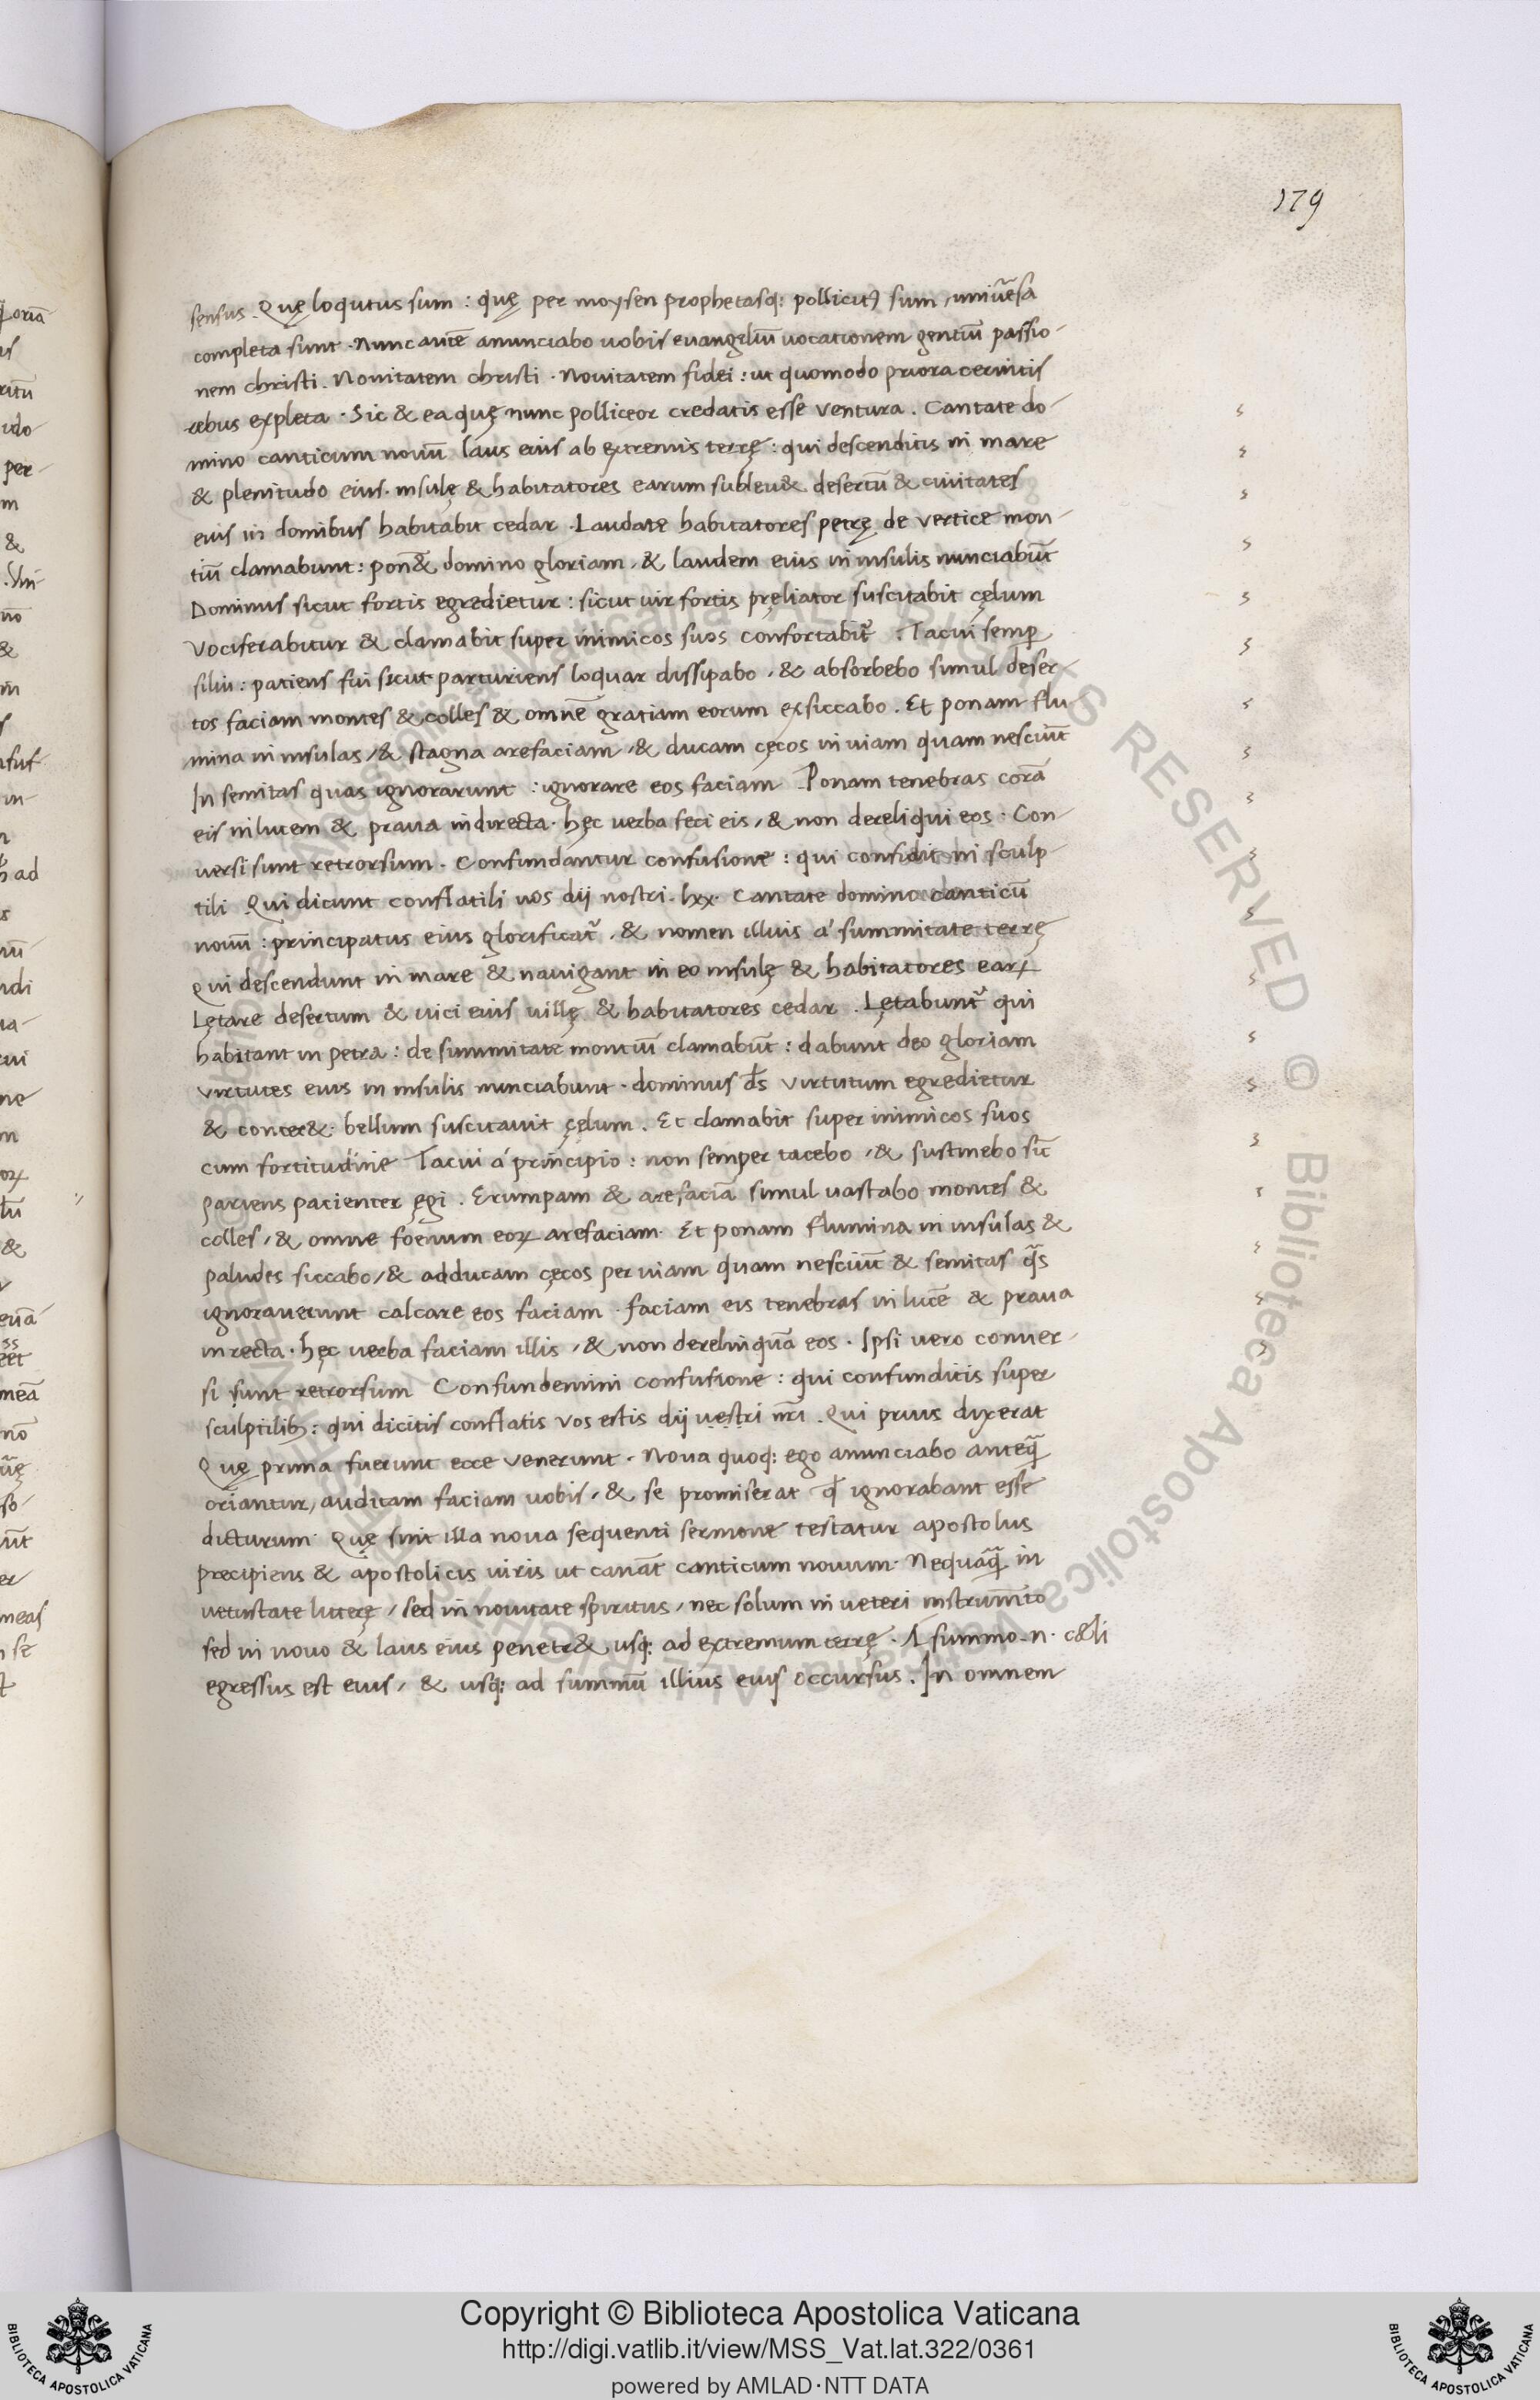 179
sensus. Quę loqutus sum : quę per moysen prophetasq; pollicitꝯ sum, uniũersa
completa sunt. Nunc autē anunciabo uobis euangeliũ uocationem gentiũ passio-
nem christi. Nouitatem christi. Nouitatem fidei : ut quomodo priora cernitis
rebus expleta. Sic & ea quę nunc polliceor credatis esse ventura. Cantate do-
mino canticum nouũ laus eius ab extremis terrę : qui descenditis in mare
& plenitudo eius. insulę & habitatores earum subleu& desertũ & ciuitates
eius in domibus habitabit cedar. Laudate habitatores petrę de vertice mon-
tiũ clamabunt : pon&̃ domino gloriam, & laudem eius in insulis nunciabũt
Dominus sicut fortis egredietur : sicut uir fortis pręliator suscitabit çęlum
Vociferabitur & clamabit super inimicos suos confortabit᷑. Tacui semꝑ
silui : patiens fui sicut parturiens loquar dissipabo, & absorbebo simul deser-
tos faciam montes & colles & omnē gratiam eorum exsiccabo. Et ponam flu
mina in insulas, & stagna arefaciam, & ducam cęcos in uiam quam nesciũt
In semitas quas ignorarunt : ignorare eos faciam. Ponam tenebras corã
eis in lucem & praua in directa. hęc uerba feci eis, & non dereliqui eos. Con-
uersi sunt retrorsum. Confundantur confusione : qui confidũt in sculp-
tili Qui dicunt conflatili uos dij nostri. lxx. Cantate domino canticũ
nouũ : principatus eius glorificat᷑, & nomen illius á summitate terrę
Qui descendunt in mare & nauigant in eo insulę & habitatores eaꝝ
Lętare desertum & uici eius uillę & habitatores cedar. Lętabunt᷑ qui
habitant in petra : de summitate montiũ clamabũt : dabunt deo gloriam
virtutes eius in insulis nunciabunt. dominus ds̄ virtutum egredietur
& conter& bellum suscitauit çęlum. Et clamabit super inimicos suos
cum fortitudine Tacui á principio : non semper tacebo, & sustinebo sic̄
pariens pacienter ęgi. Erumpam & arefaciã simul uastabo montes &
colles, & omne foenum eoꝝ arefaciam. Et ponam flumina in insulas &
paludes siccabo, & adducam cęcos per uiam quam nesciũt & semitas q̃s
ignorauerunt calcare eos faciam. faciam eis tenebras in lucē & praua
in recta. hęc uerba faciam illis, & non derelinquã eos. Ipsi uero conuer-
si sunt retrorsum Confundemini confusione : qui confunditis super
sculptilib; : qui dicitis conflatis vos estis dij uestri nr̄i. Qui prius dixerat
Quę prima fuerunt ecce venerunt. Noua quoq; ego anunciabo anteq̃
oriantur, auditam faciam uobis, & se promiserat qđ ignorabant esse
dicturum. Quę sint illa noua sequenti sermone testatur apostolus
precipiens & apostolicis uiris ut canãt canticum nouum. Nequaq̃ in
uetustate litterę, sed in nouitate spiritus, nec solum in ueteri instrum̄to
sed in nouo & laus eius penetr& usq; ad extremum terrę. A summo .n. cęli
egressus est eius, & usq; ad summũ illius eius occursus. In omnem
Copyright © Biblioteca Apostolica Vaticana
http://digi.vatlib.it/view/MSS_Vat.lat.322/0361
powered by AMLAD·NTT DATA